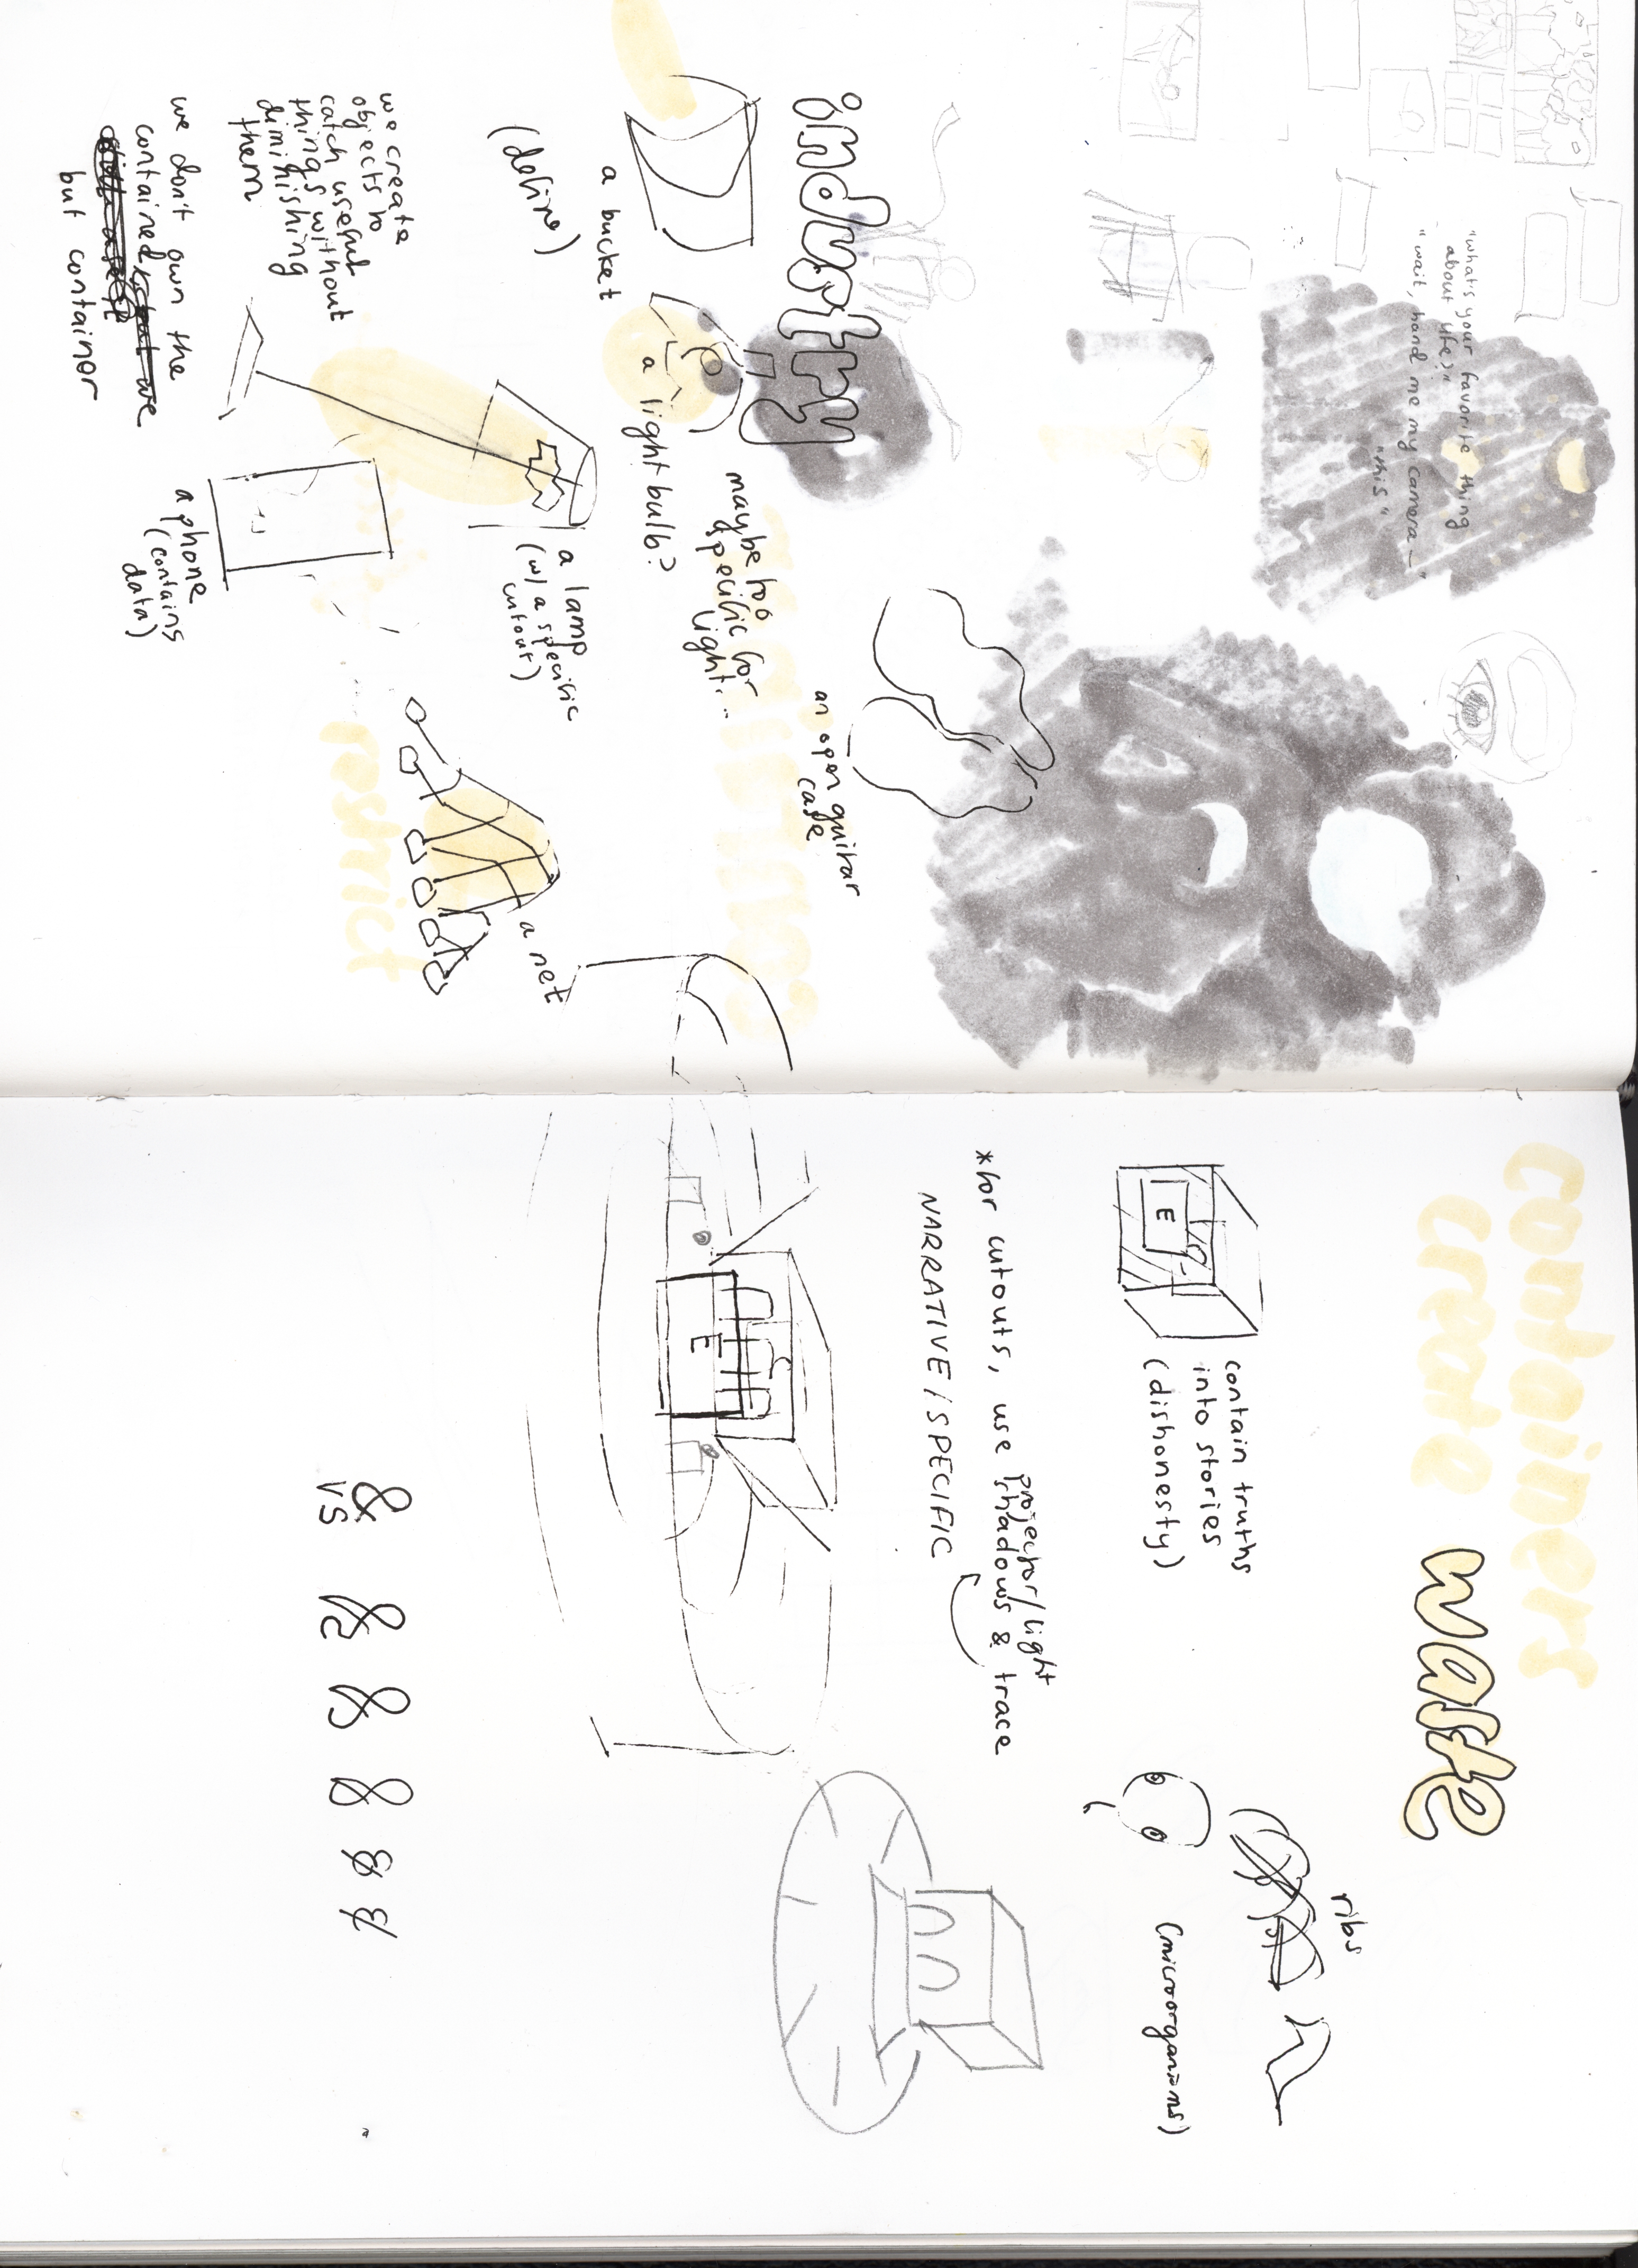 "what's your favorite thing
about life?"
"wait, hand me my camera—"
"this"
industry
a bucket
(define)
we create
objects to
catch useful
things without
diminishing
them
we don't own the
contained
but container
a light bulb?
maybe too
specific for
light...
a lamp
(w/ a specific
cutout)
a phone
(contains
data)
an open guitar
case
a net
restrict
containers
create
waste
E
contain truths
into stories
(dishonesty)
*for cutouts, use projector/light
shadows & trace
NARRATIVE / SPECIFIC
E
ribs
(microorganisms)
& & & & & &
vs